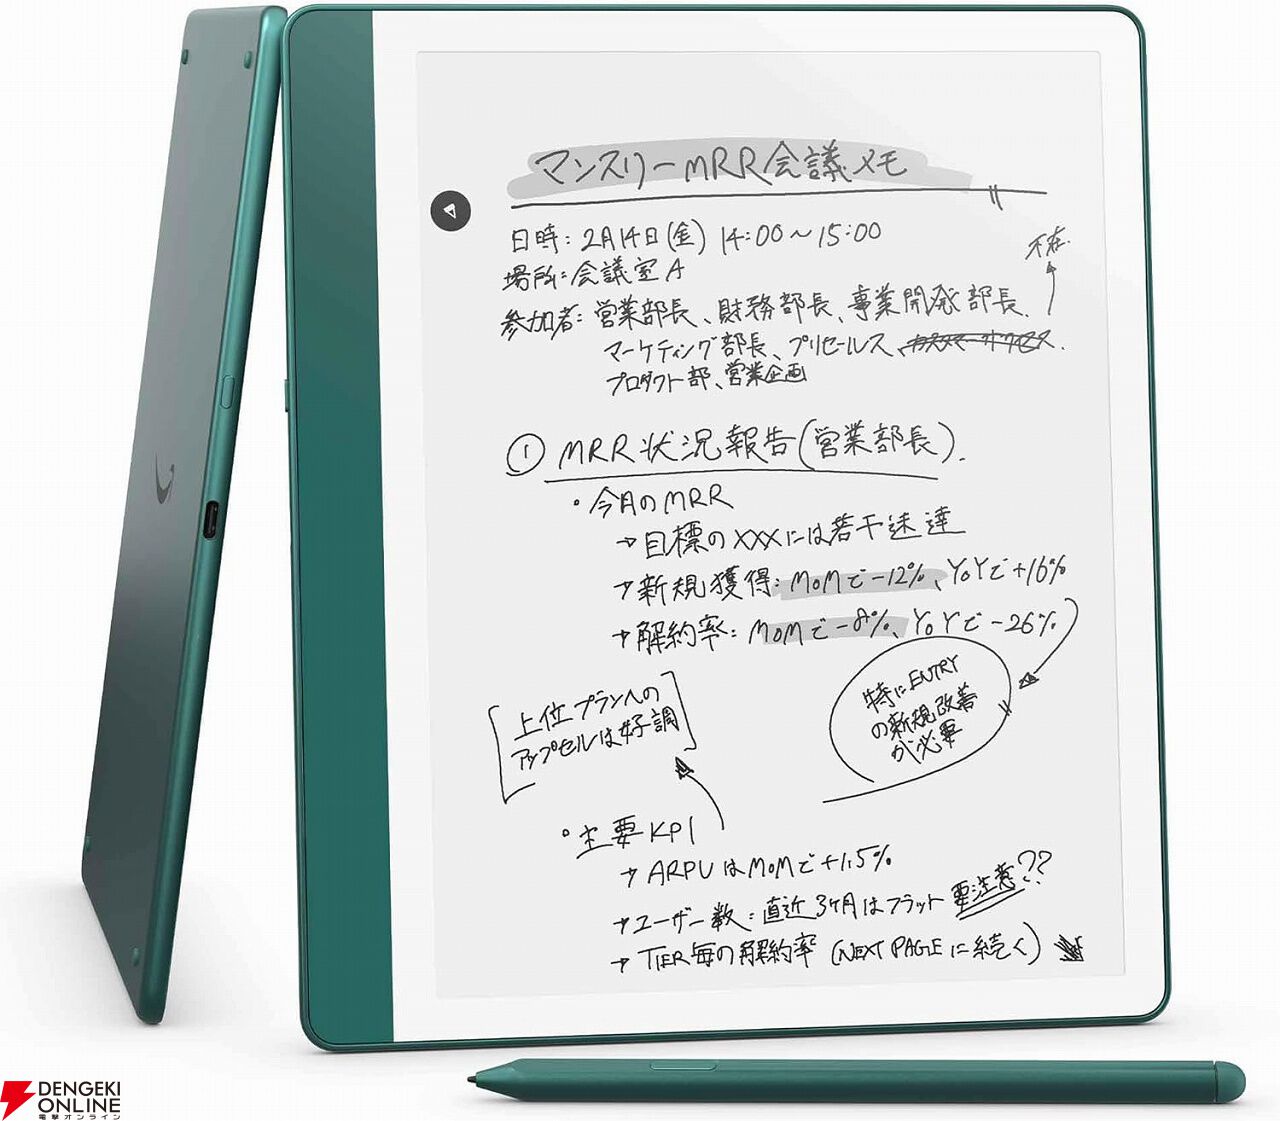 マンスリーMRR会議メモ
日時：2月14日(金) 14:00～15:00
場所：会議室A
不在
参加者：営業部長、財務部長、事業開発部長、
マーケティング部長、プリセールス、
プロダクト部、営業企画
① MRR状況報告(営業部長).
・今月のMRR
→目標のXXXには若干未達
→新規獲得：MoMで-12%、YoYで+16%
→解約率：MoMで-8%、YoYで-26%
特にENTRY
の新規改善
が必要
上位プランへの
アップセルは好調
・主要KPI
→ARPUはMoMで+1.5%
→ユーザー数：直近3ヶ月はフラット 要注意??
→TIER毎の解約率(NEXT PAGEに続く)
DENGEKI
ONLINE
電撃オンライン